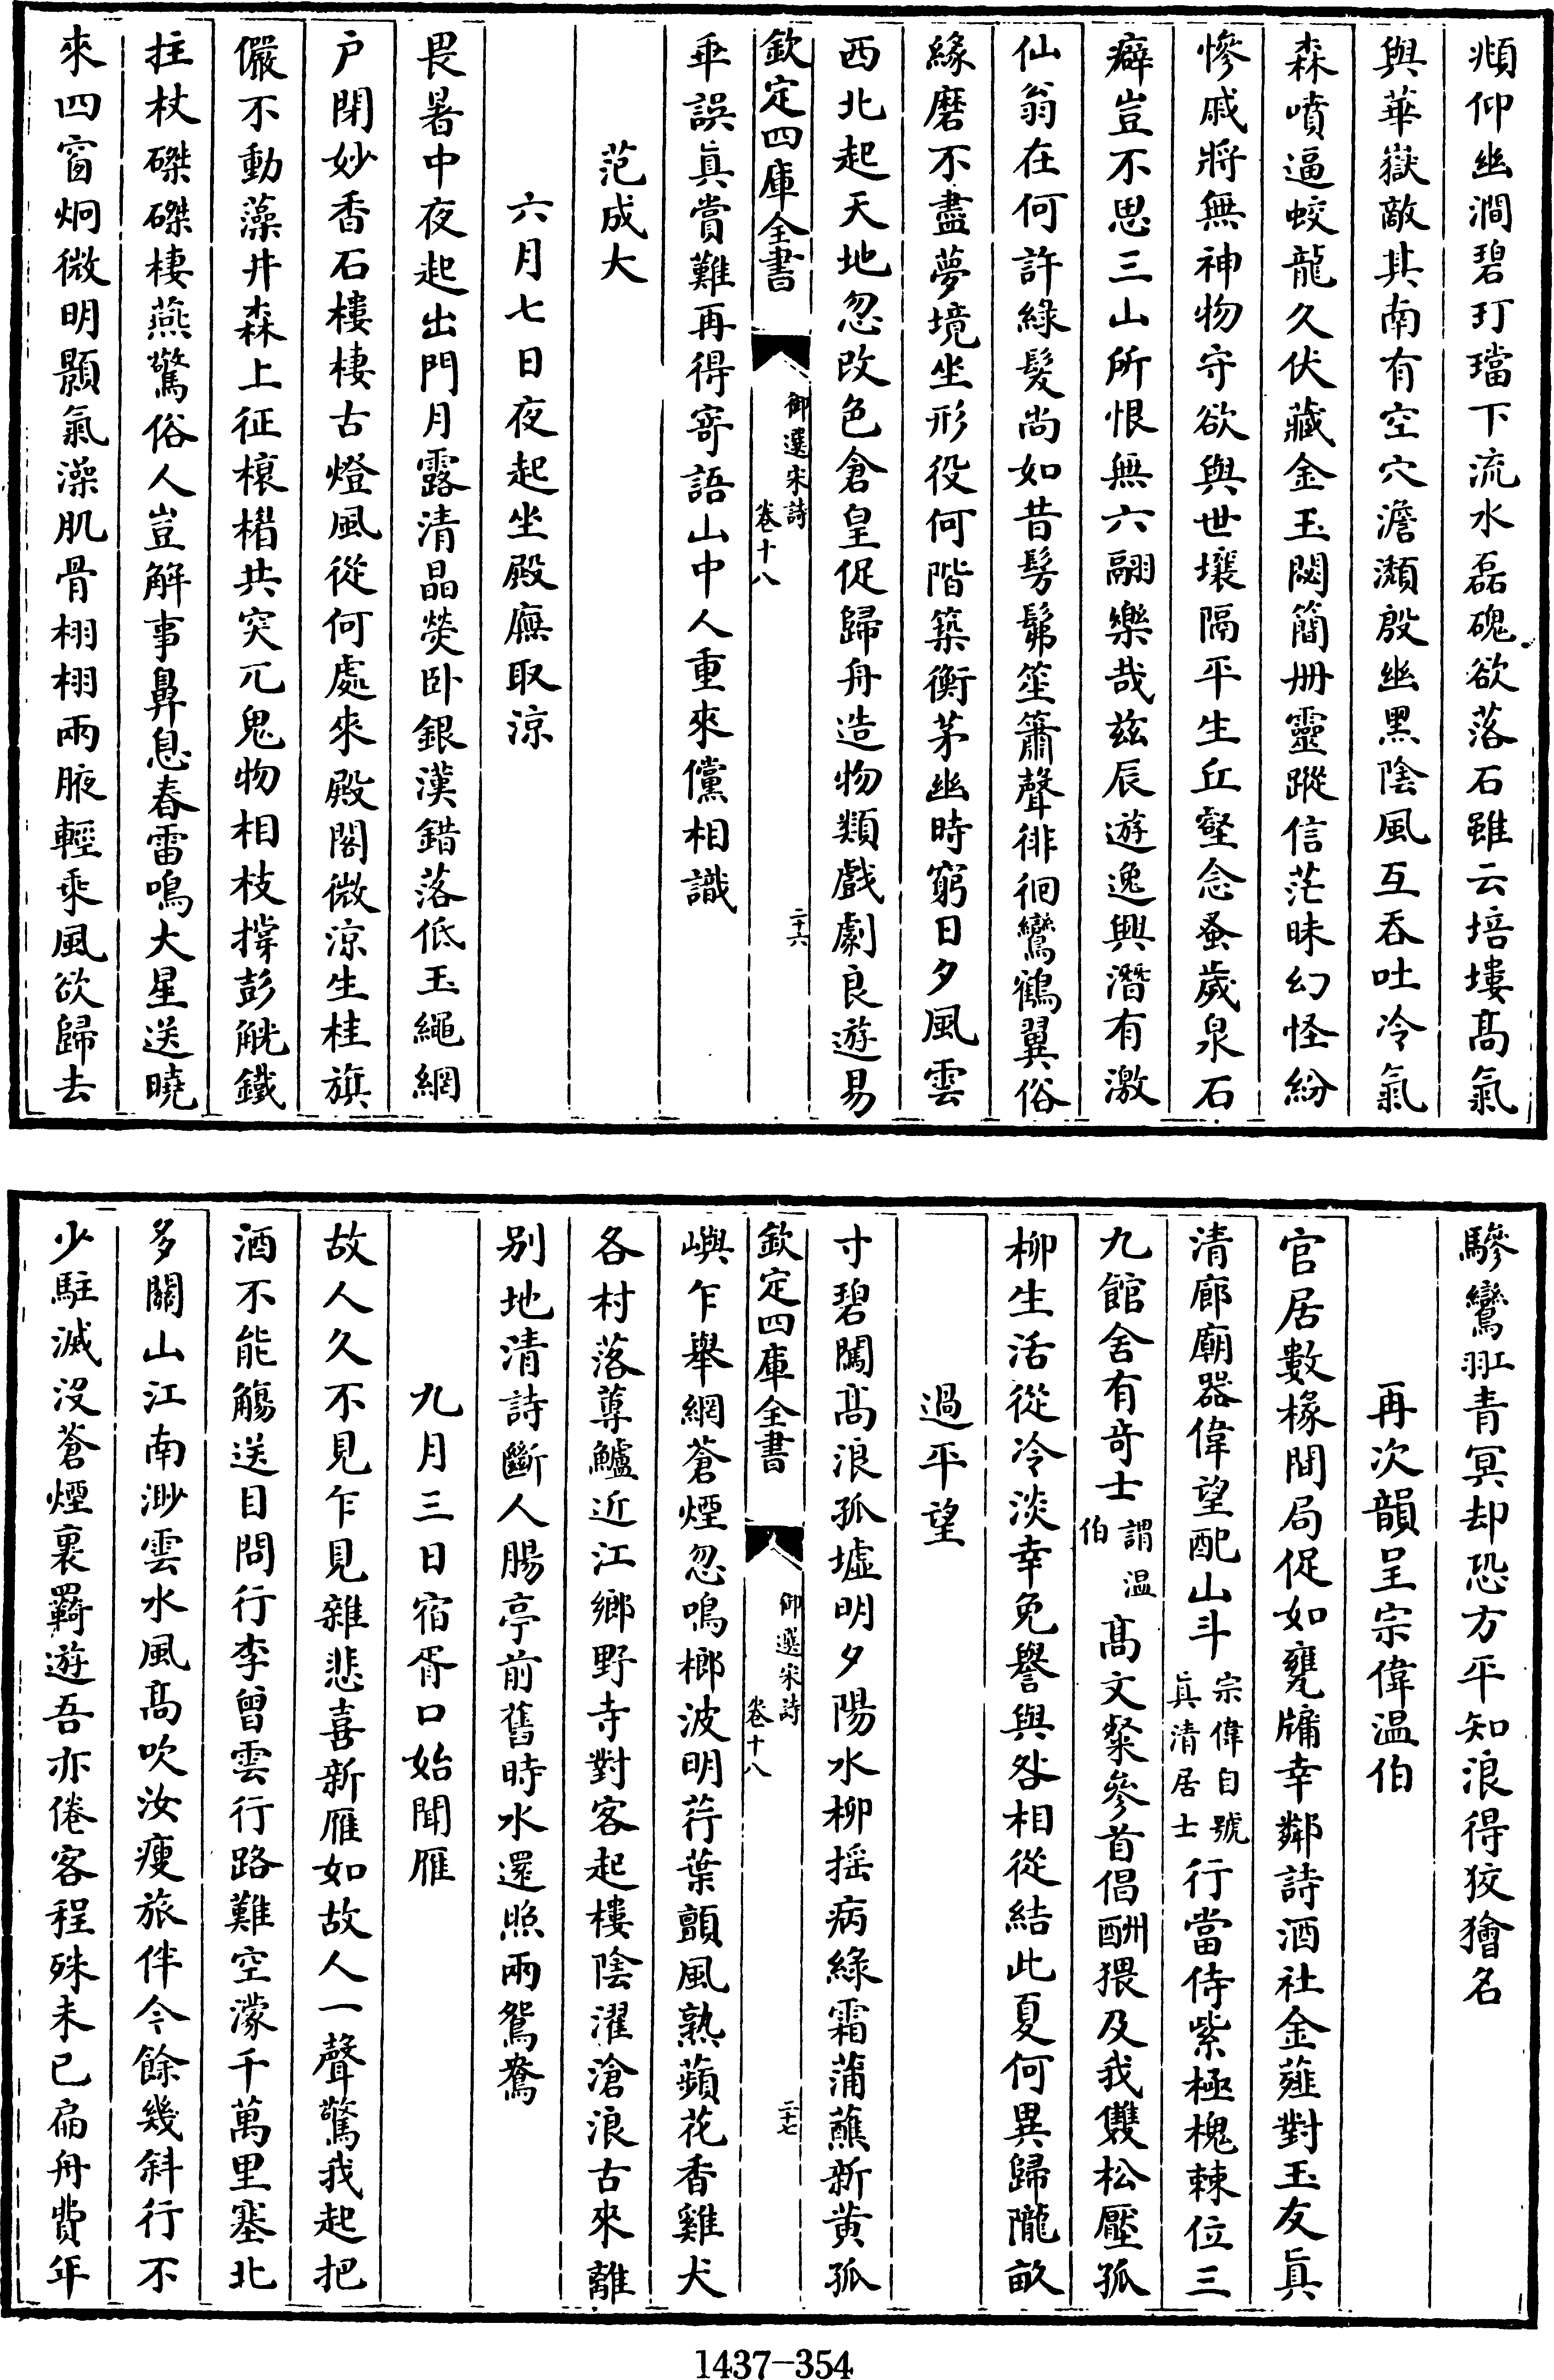 頫仰幽澗碧玎璫下流水磊磈欲落石雖云培塿髙氣
與華嶽敵其南有空穴澹瀩殷幽黑陰風互吞吐冷氣
森噴逼蛟龍久伏藏金玉閟簡冊靈蹤信茫昧幻怪紛
慘戚將無神物守欲與世壤隔平生丘壑念蚤歲泉石
癖豈不思三山所恨無六翮樂哉茲辰遊逸興潛有激
仙翁在何許綠髮尚如昔髣髴笙簫聲徘徊鸞鶴翼俗
緣磨不盡夢境坐形役何階築衡茅幽時窮日夕風雲
西北起天地忽改色倉皇促歸舟造物類戲劇良遊易
欽定四庫全書
御選宋詩
卷十八
二十六
乖誤真賞難再得寄語山中人重來儻相識
范成大
六月七日夜起坐殿廡取涼
畏暑中夜起出門月露清晶熒卧銀漢錯落低玉繩網
户閉妙香石樓棲古燈風從何處來殿閣微涼生桂旗
儼不動藻井森上征榱楣共突兀鬼物相枝撐彭觥鐵
拄杖磔磔棲燕驚俗人豈解事鼻息春雷鳴大星送曉
來四窗炯微明顥氣澡肌骨栩栩兩腋輕乘風欲歸去
驂鸞羾青冥却恐方平知浪得狡獪名
再次韻呈宗偉温伯
官居數椽間局促如甕牖幸鄰詩酒社金薤對玉友真
清廊廟器偉望配山斗宗偉自號真清居士行當侍紫極槐棘位三
九館舍有竒士謂温伯髙文粲參首倡酬猥及我雙松壓孤
柳生活從冷淡幸免譽與咎相從結此夏何異歸隴畝
過平望
寸碧闖髙浪孤墟明夕陽水柳揺病緑霜蒲蘸新黄孤
欽定四庫全書
御選宋詩
卷十八
二十七
嶼乍舉網蒼煙忽鳴榔波明荇葉顫風熟蘋花香雞犬
各村落蓴鱸近江鄉野寺對客起樓陰濯滄浪古來離
别地清詩斷人腸亭前舊時水還照兩鴛鴦
九月三日宿胥口始聞雁
故人久不見乍見雜悲喜新雁如故人一聲驚我起把
酒不能觴送目問行李曾雲行路難空濛千萬里塞北
多關山江南渺雲水風髙吹汝瘦旅伴今餘幾斜行不
少駐滅没蒼煙裏羇遊吾亦倦客程殊未已扁舟費年
1437-354